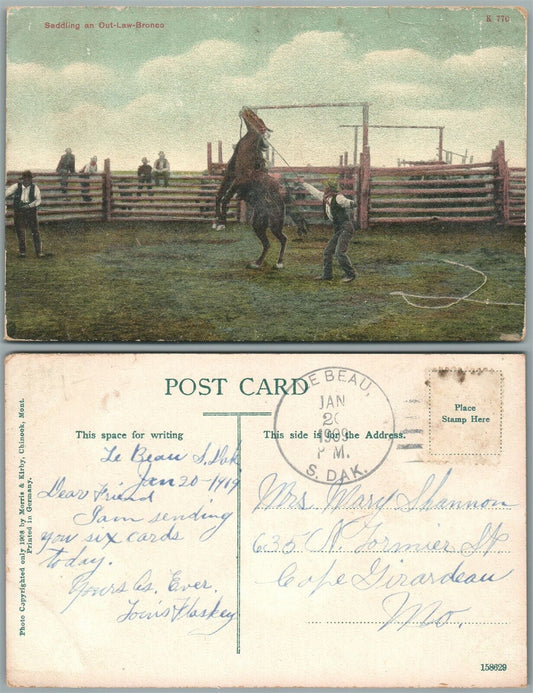 Saddling an Out-Law-Bronco
K 770
POST CARD
This space for writing
This side is for the Address.
Place
Stamp Here
LE BEAU,
JAN
20
1909
P M.
S. DAK.
Le Beau S. Dak
Jan 20-1919
Dear Friend
I am sending
you six cards
today.
Yours As. Ever.
Mrs. Mary Shannon
635 N. Formier St
Cape Girardeau
Mo.
Photo Copyrighted only 1908 by Morris & Kirby, Chinook, Mont.
Printed in Germany.
158629